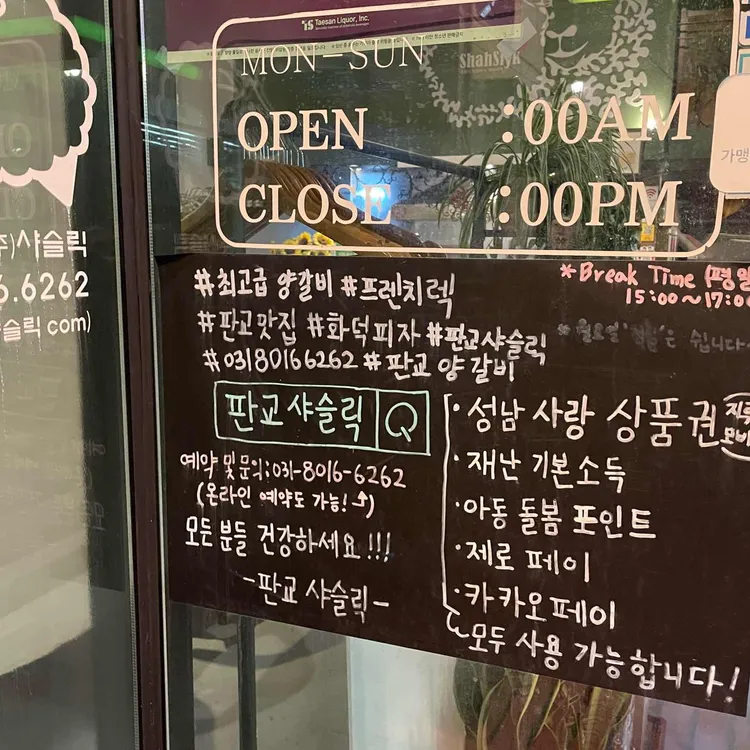 TS Taesan Liquor, Inc.
MON-SUN
ShahSlyk
OPEN :00AM
CLOSE :00PM
가맹
샤슬릭
6.6262
슬릭 com)
#최고급 양갈비 #프렌치렉
#판교맛집 #화덕피자 #판교샤슬릭
#03180166262 #판교 양갈비
*Break Time (평일
15:00~17:0
쉽니다
판교 샤슬릭 Q
예약 및 문의:031-8016-6262
(온라인 예약도 가능!)
모든 분들 건강하세요!!!
-판교 샤슬릭-
·성남 사랑 상품권
·재난 기본소득
·아동 돌봄 포인트
·제로 페이
·카카오페이
모두 사용 가능합니다!